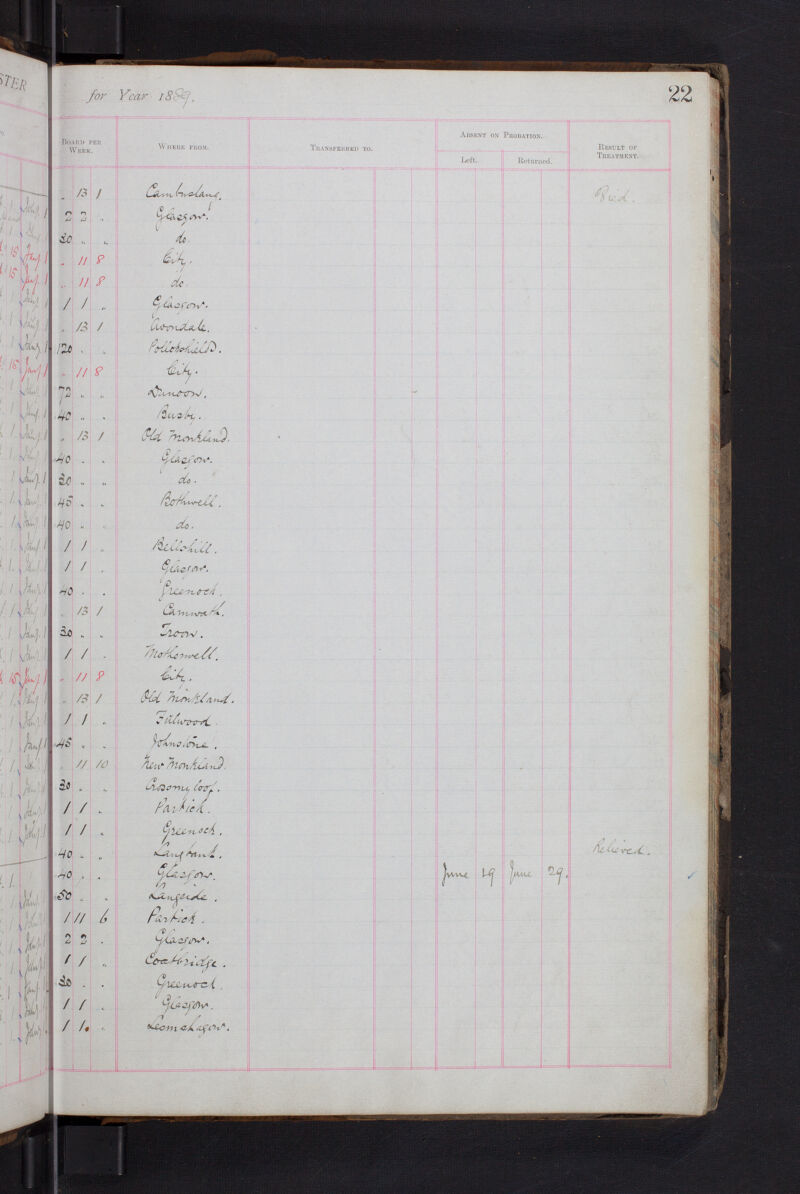 for Year 1889.
22
BOARD PER WEEK.
WHERE FROM.
TRANSFERRED TO.
ABSENT ON PROBATION.
Left.
Returned.
RESULT OF TREATMENT.
.. 13 1 Cambuslang. Died.
2 2 .. Glasgow.
30 .. .. do.
.. 11 8 City.
.. 11 8 do.
1 1 .. Glasgow.
.. 13 1 Avondale.
120 .. .. Pollokshields.
.. 11 8 City.
72 .. .. Dunoon.
40 .. .. Busby.
.. 13 1 Old Monkland.
40 .. .. Glasgow.
30 .. .. do.
45 .. .. Bothwell.
40 .. .. do.
1 1 .. Bellshill.
1 1 .. Glasgow.
40 .. .. Greenock.
.. 13 1 Carnwath.
30 .. .. Troon.
1 1 .. Motherwell.
.. 11 8 City.
.. 13 1 Old Monkland.
1 1 .. Fulwood.
45 .. .. Johnstone.
.. 11 10 New Monkland.
30 .. .. Crossmyloof.
1 1 .. Partick.
1 1 .. Greenock.
40 .. .. Langbank. Relieved.
40 .. .. Glasgow. June 19 June 29.
50 .. .. Langside.
1 11 6 Partick.
2 2 .. Glasgow.
1 1 .. Coatbridge.
30 .. .. Greenock.
1 1 .. Glasgow.
1 1 .. Lesmahagow.